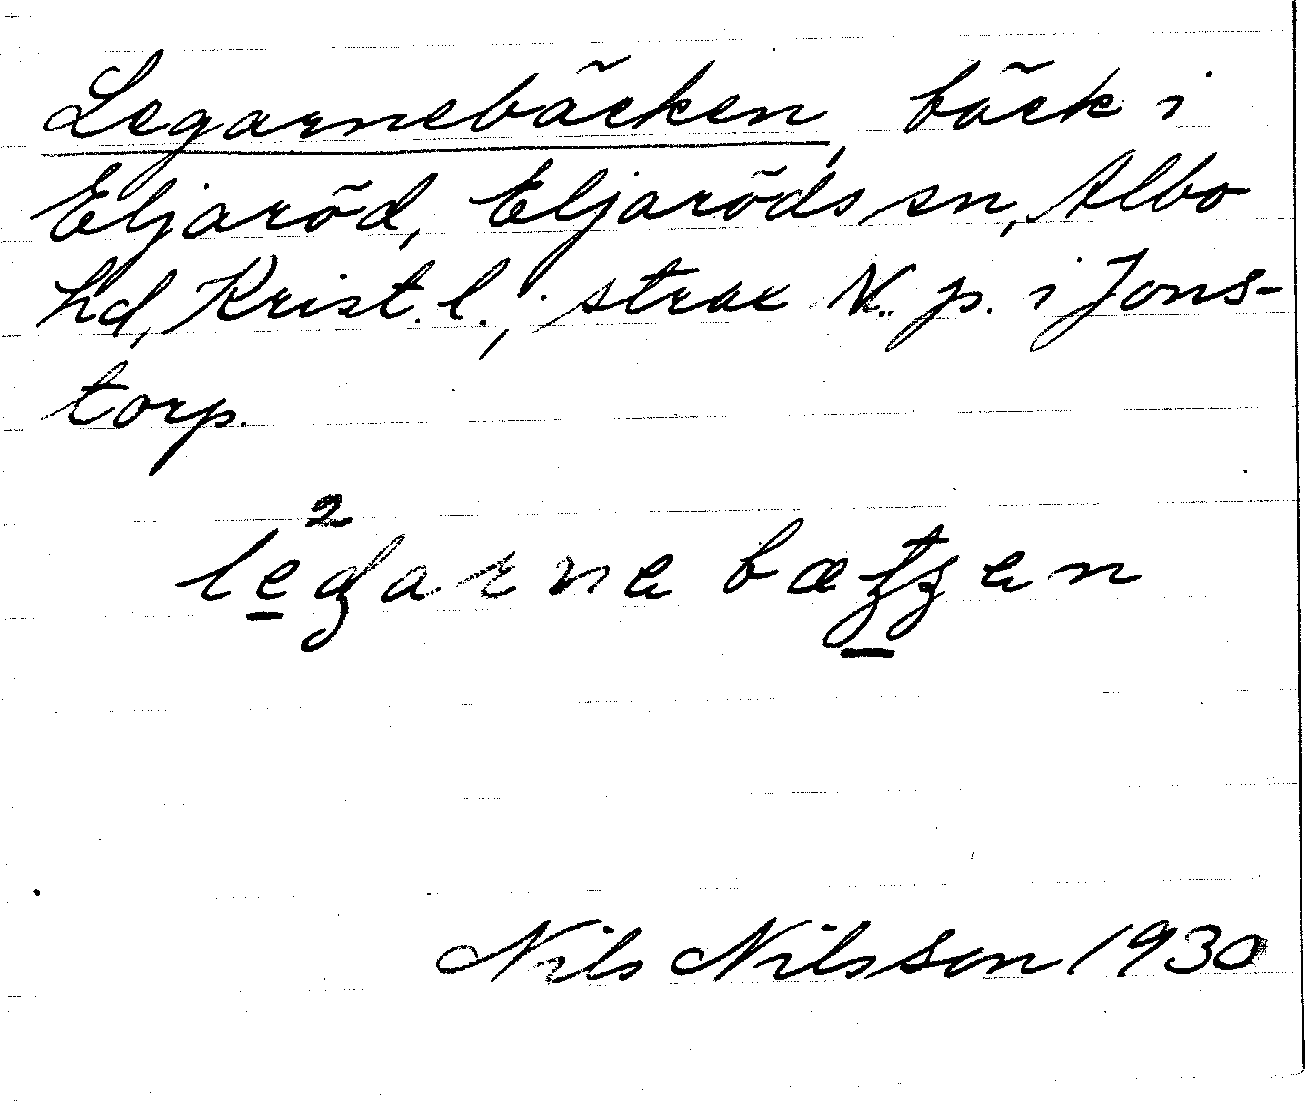 Legarnebäcken, bäck i
Eljaröd, Eljaröds sn, Albo
hd, Krist. l.; strax N. p. i Jons-
torp.
2
legarne bætʒen
Nils Nilsson 1930